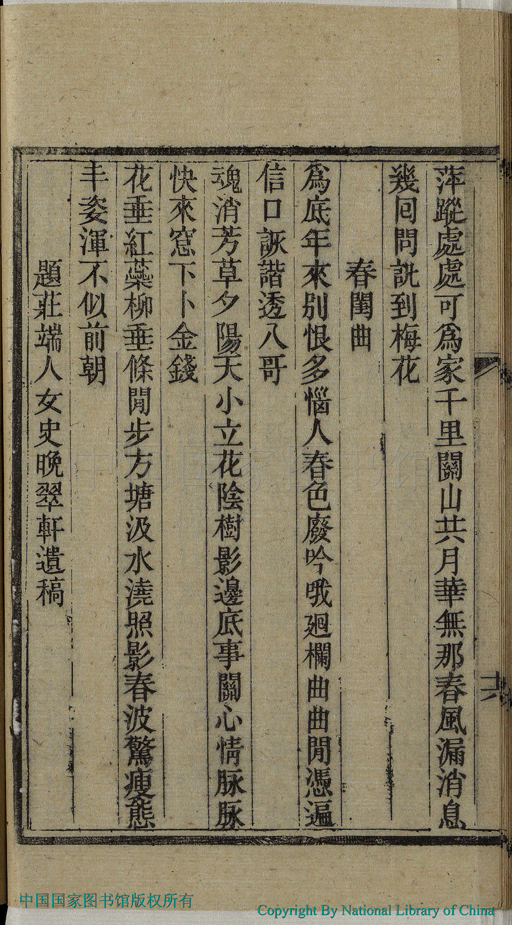 萍蹤處處可爲家千里關山共月華無那春風漏消息
幾回問訊到梅花
春閨曲
爲底年來別恨多惱人春色廢吟哦廻欄曲曲閒憑遍
信口詼諧透八哥
魂消芳草夕陽天小立花陰樹影邊底事關心情脉脉
快來窓下卜金錢
花垂紅蘂柳垂條閒步方塘汲水澆照影春波驚瘦態
丰姿渾不似前朝
題莊端人女史晚翠軒遺稿
中国国家图书馆版权所有
Copyright By National Library of China